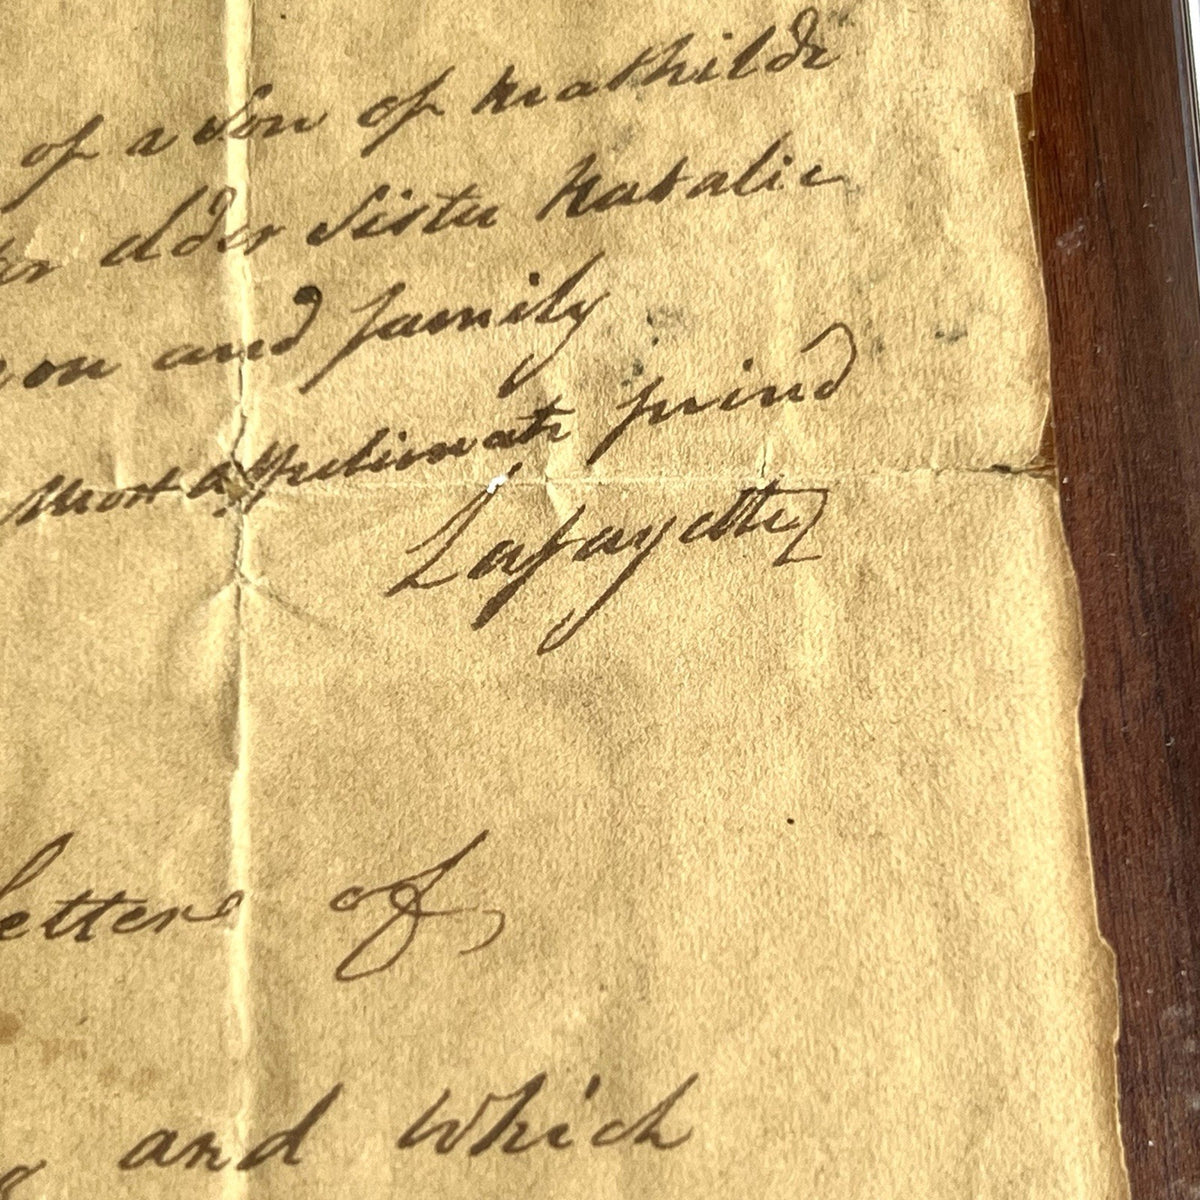 of a Son of Mathilde
elder Sister Natalie
and family
Most Affectionate friend
Lafayette
letters of
and which